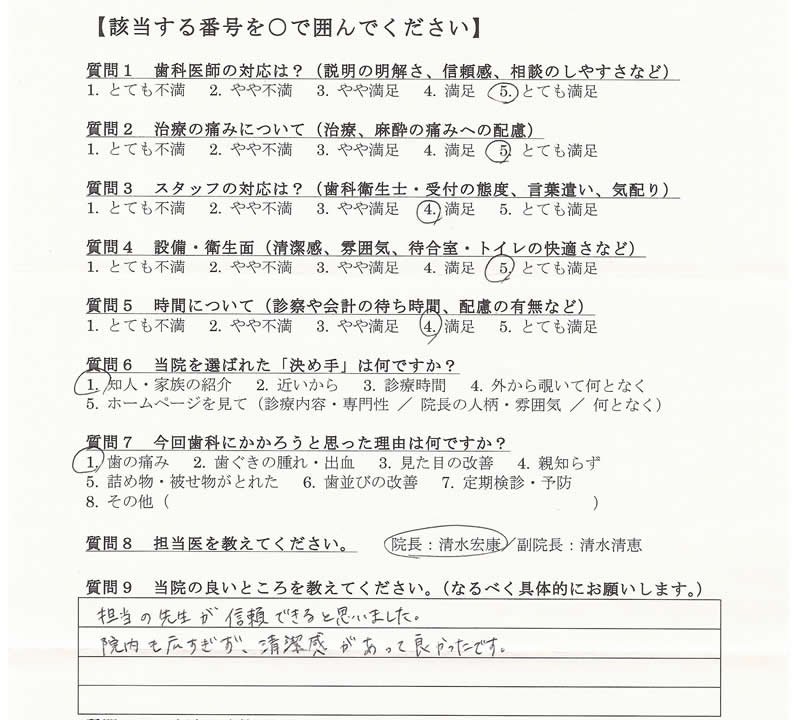 【該当する番号を〇で囲んでください】
質問1 歯科医師の対応は？（説明の明解さ、信頼感、相談のしやすさなど）
1. とても不満 2. やや不満 3. やや満足 4. 満足 5. とても満足
質問2 治療の痛みについて（治療、麻酔の痛みへの配慮）
1. とても不満 2. やや不満 3. やや満足 4. 満足 5. とても満足
質問3 スタッフの対応は？（歯科衛生士・受付の態度、言葉遣い、気配り）
1. とても不満 2. やや不満 3. やや満足 4. 満足 5. とても満足
質問4 設備・衛生面（清潔感、雰囲気、待合室・トイレの快適さなど）
1. とても不満 2. やや不満 3. やや満足 4. 満足 5. とても満足
質問5 時間について（診察や会計の待ち時間、配慮の有無など）
1. とても不満 2. やや不満 3. やや満足 4. 満足 5. とても満足
質問6 当院を選ばれた「決め手」は何ですか？
1. 知人・家族の紹介 2. 近いから 3. 診療時間 4. 外から覗いて何となく
5. ホームページを見て（診療内容・専門性 ／ 院長の人柄・雰囲気 ／ 何となく）
質問7 今回歯科にかかろうと思った理由は何ですか？
1. 歯の痛み 2. 歯ぐきの腫れ・出血 3. 見た目の改善 4. 親知らず
5. 詰め物・被せ物がとれた 6. 歯並びの改善 7. 定期検診・予防
8. その他（ ）
質問8 担当医を教えてください。 院長：清水宏康／副院長：清水清恵
質問9 当院の良いところを教えてください。（なるべく具体的にお願いします。）
担当の先生が信頼できると思いました。
院内も広すぎず、清潔感があって良かったです。